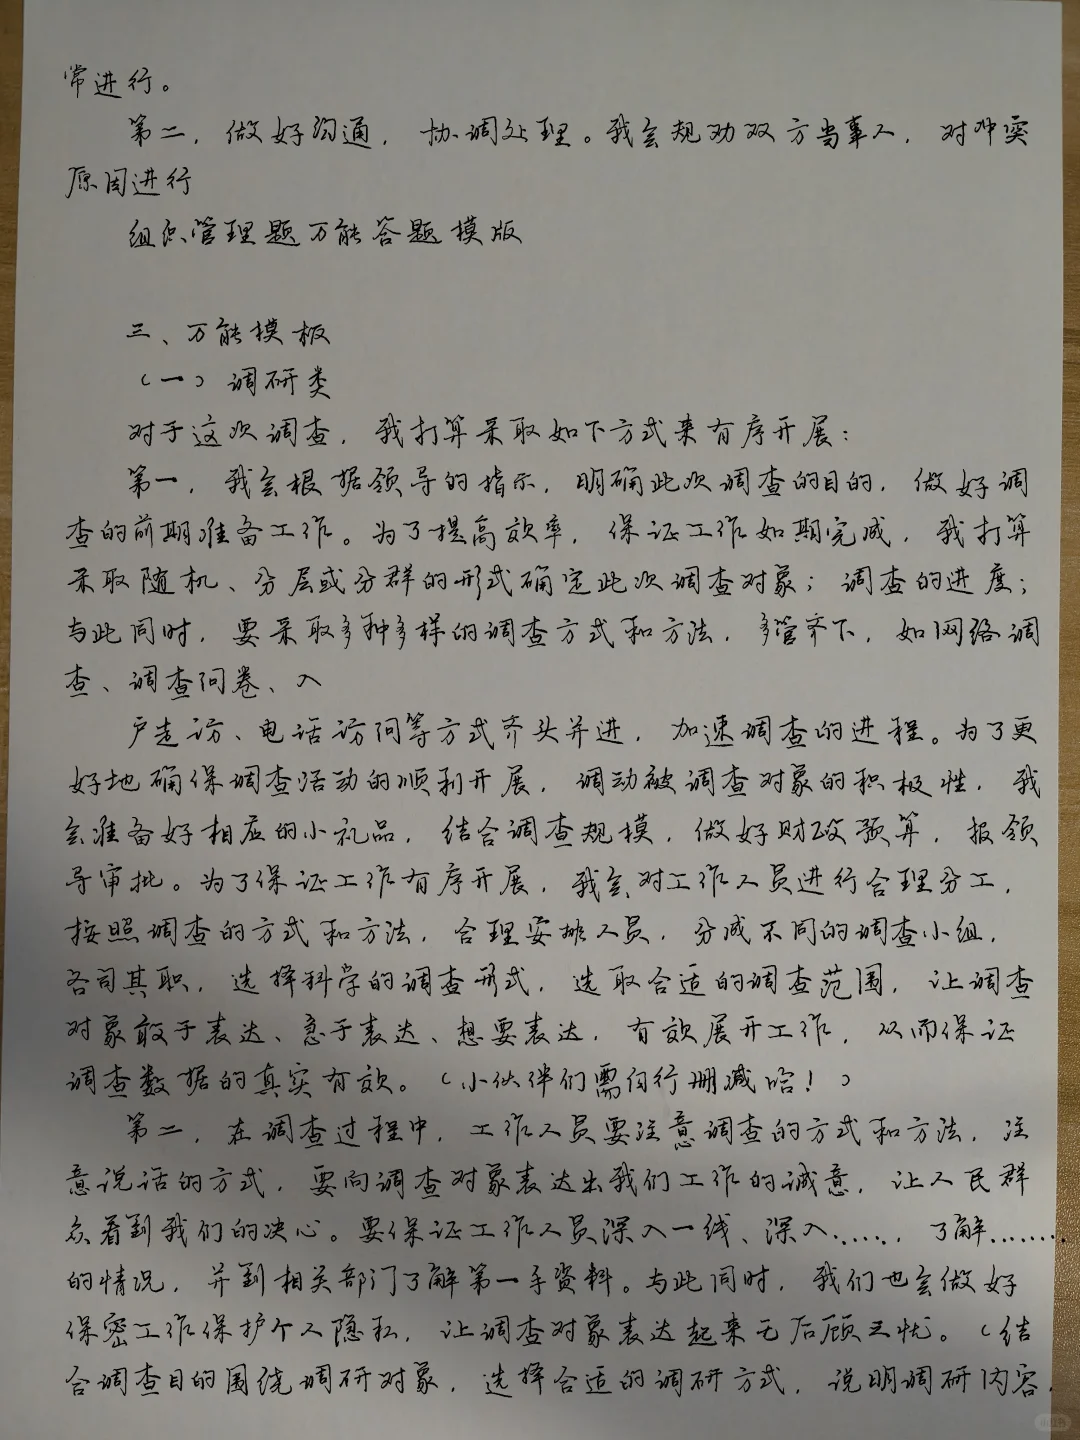 常进行。
第二，做好沟通，协调处理。我会规劝双方当事人，对冲突
原因进行
组织管理题万能答题模版
三、万能模板
（一）调研类
对于这次调查，我打算采取如下方式来有序开展：
第一，我会根据领导的指示，明确此次调查的目的，做好调
查的前期准备工作。为了提高效率，保证工作如期完成，我打算
采取随机、分层或分群的形式确定此次调查对象；调查的进度；
与此同时，要采取多种多样的调查方式和方法，多管齐下，如网络调
查、调查问卷、入
户走访、电话访问等方式齐头并进，加速调查的进程。为了更
好地确保调查活动的顺利开展，调动被调查对象的积极性，我
会准备好相应的小礼品，结合调查规模，做好财政预算，报领
导审批。为了保证工作有序开展，我会对工作人员进行合理分工，
按照调查的方式和方法，合理安排人员，分成不同的调查小组，
各司其职，选择科学的调查形式，选取合适的调查范围，让调查
对象敢于表达、急于表达、想要表达，有效展开工作，从而保证
调查数据的真实有效。（小伙伴们需自行删减哈！）
第二，在调查过程中，工作人员要注意调查的方式和方法，注
意说话的方式，要向调查对象表达出我们工作的诚意，让人民群
众看到我们的决心。要保证工作人员深入一线、深入......，了解........
的情况，并到相关部门了解第一手资料。与此同时，我们也会做好
保密工作保护个人隐私，让调查对象表达起来无后顾之忧。（结
合调查目的围绕调研对象，选择合适的调研方式，说明调研内容，
小红书